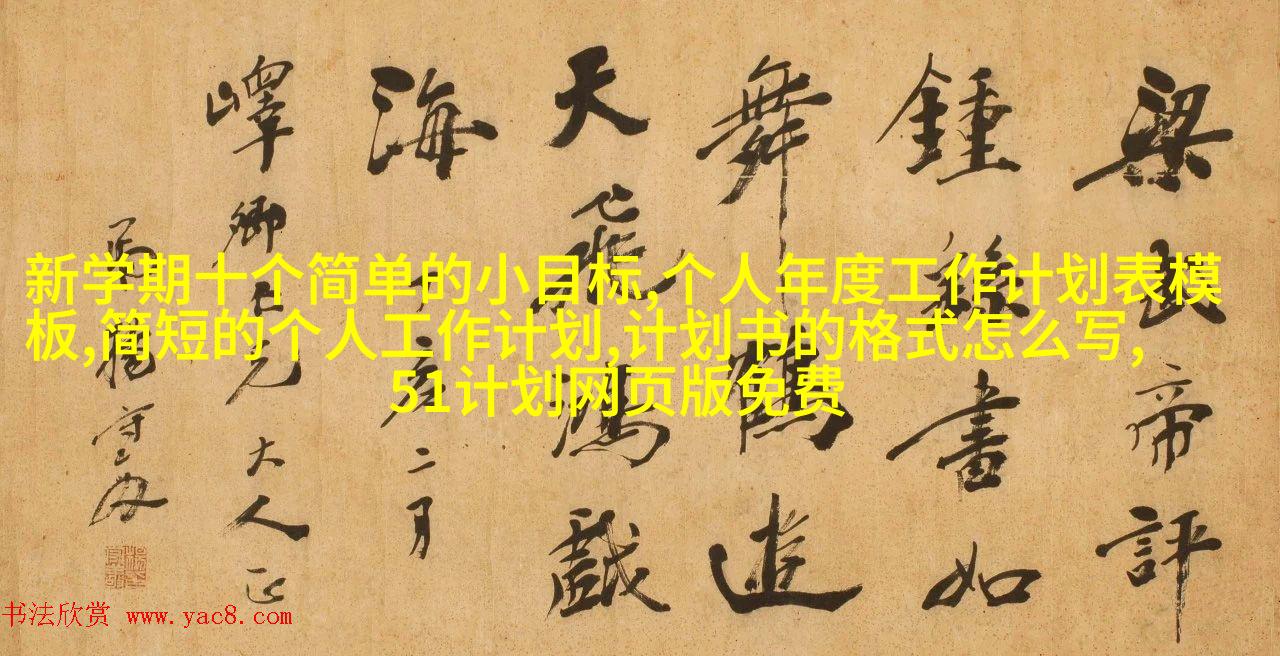 新学期十个简单的小目标,个人年度工作计划表模
板,简短的个人工作计划,计划书的格式怎么写,
51计划网页版免费
梁武帝評
鍾繇書如
舞鶴遊
天飛鴻戲
海丁亥二月
嶧卿仁兄大人正
楊守敬
书法欣赏 www.yac8.com